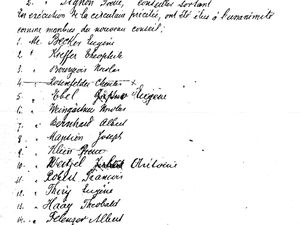 2. " Pignon Louis, conseiller sortant
En exécution de la circulaire précitée, ont été élus à l'unanimité
comme membres du nouveau conseil:
1. Mr. Becker Eugène
2. " Kieffer Théophile
3. " Bourgeois Nicolas
4. " Rosenfelder Charles
5. " Ebel Eugène
6. " Weingärtner Nicolas
7. " Bernhard Albert
8. " Mansion Joseph
9. " Klein
10. " Weitzel Antoine
11. " Robert François
12. " Thiry Eugène
13. " Haag Théobald
14. " Pelenger Albert